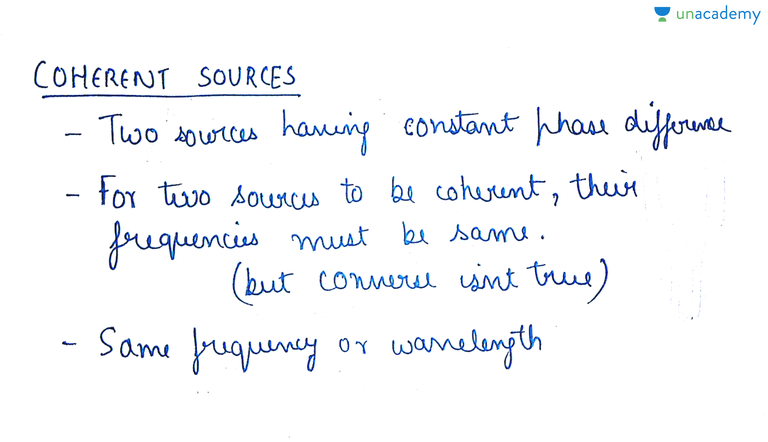 unacademy
COHERENT SOURCES
- Two sources having constant phase difference
- For two sources to be coherent, their
frequencies must be same.
(but converse isnt true)
- Same frequency or wavelength